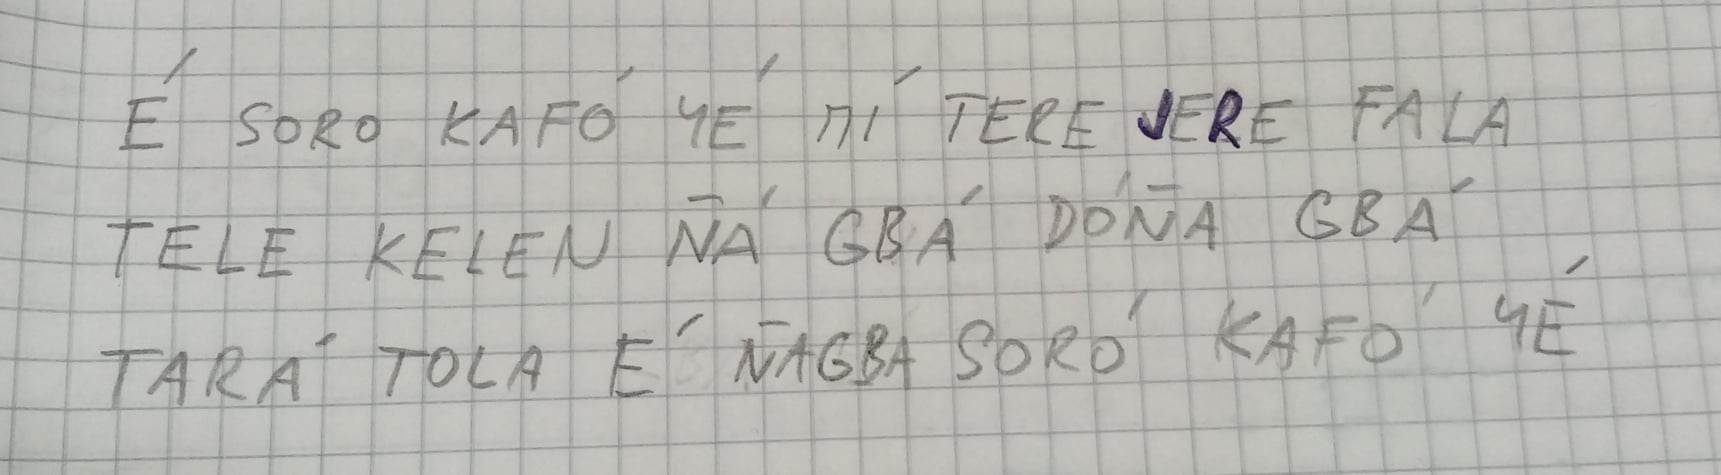 É SORO KAFÓ YÉ NÍ TERE JERE FALA
TELE KELEN ÑÁ GBÁ DÓÑA GBÁ
TARÁ TOLA É ÑAGBA SORÓ KAFÓ YÉ